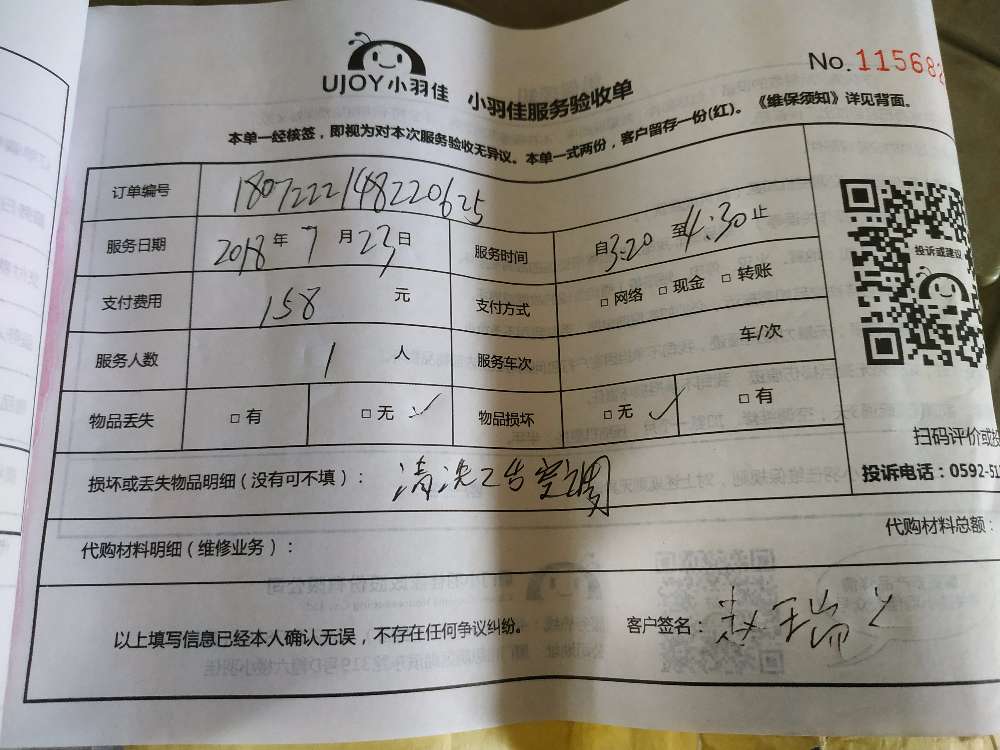 UJOY小羽佳 小羽佳服务验收单
No.115682
本单一经核签，即视为对本次服务验收无异议。本单一式两份，客户留存一份(红)。《维保须知》详见背面。
订单编号 1807222148220625
服务日期 2018年7月23日 服务时间 自3:20至4:30止
支付费用 158 元 支付方式 □网络 □现金 □转账
服务人数 1 人 服务车次 车/次
物品丢失 □有 □无 ✓ 物品损坏 □无 ✓ □有
投诉或建议
扫码评价或投
投诉电话：0592-51
损坏或丢失物品明细（没有可不填）： 清洗2台空调
代购材料明细（维修业务）：
代购材料总额：
以上填写信息已经本人确认无误，不存在任何争议纠纷。
客户签名：赵瑞